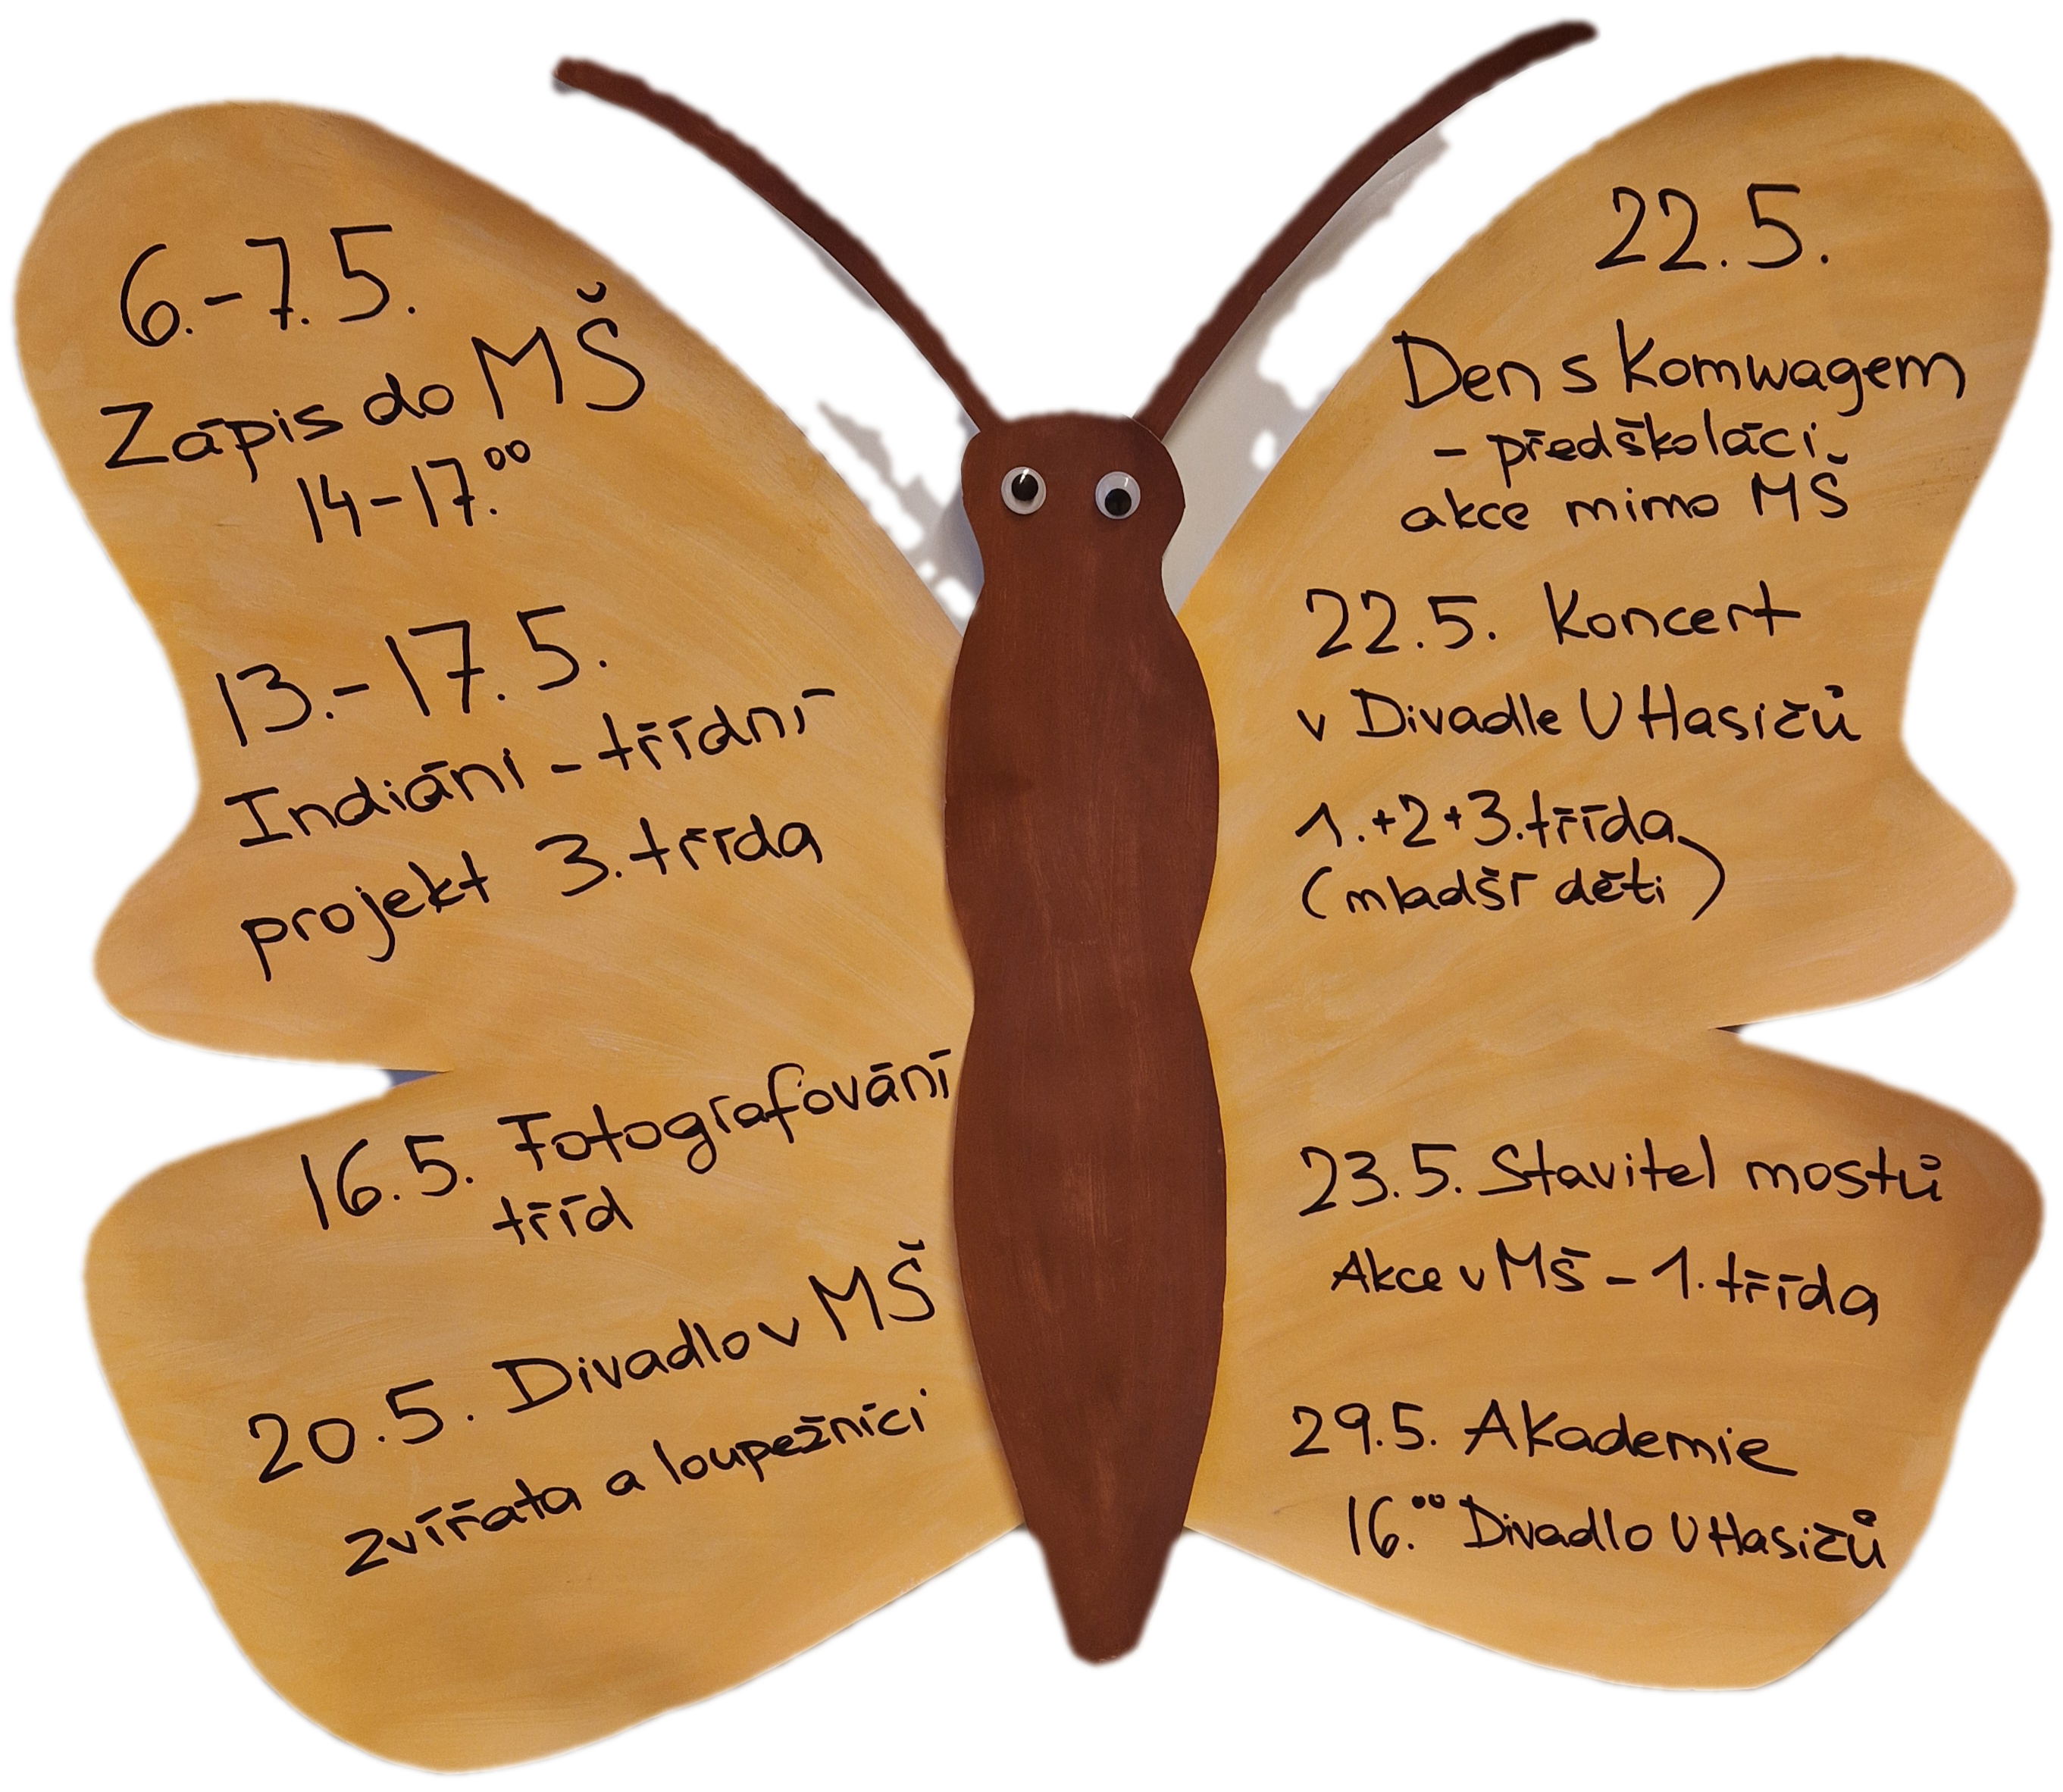 6.-7.5.
Zápis do MŠ
14-17.00
13.-17.5.
Indiáni - třídní
projekt 3. třída
16.5. Fotografování
tříd
20.5. Divadlo v MŠ
zvířata a loupežníci
22.5.
Den s Komwagem
- předškoláci
akce mimo MŠ
22.5. Koncert
v Divadle U Hasičů
1.+2+3. třída
(mladší děti)
23.5. Stavitel mostů
Akce v MŠ - 1. třída
29.5. Akademie
16.00 Divadlo U Hasičů